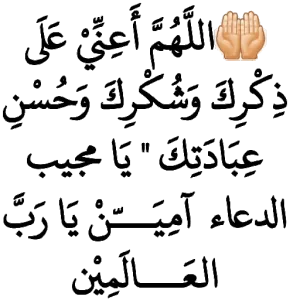 🤲🏻اللَّهُمَّ أَعِنِّيْ عَلَى
ذِكْرِكَ وَشُكْرِكَ وَحُسْنِ
عِبَادَتِكَ " يَا مجيب
الدعاء آمِيَـــــّنْ يَا رَبَّ
العَـــــالَمِيْن